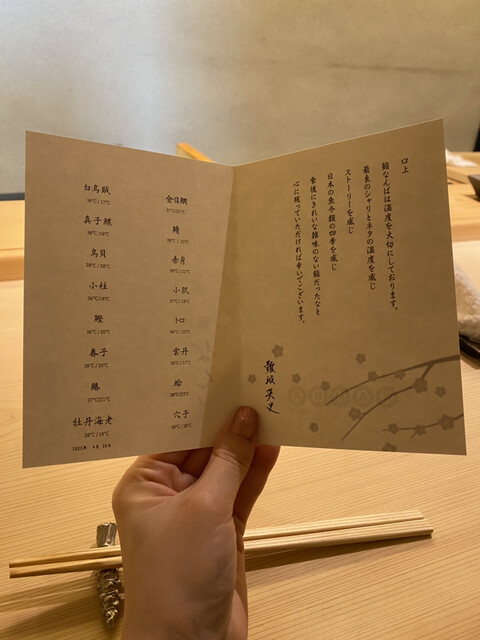 口上
鮨なんばは温度を大切にしております。
最良のシャリとネタの温度を感じ
ストーリーを感じ
日本の魚介類の四季を感じ
食後にきれいな雑味のない鮨だったなと
心に残っていただければ幸いでございます。
難波 英史
白烏賊
真子鰈
36℃/18℃
鳥貝
小柱
36℃/18℃
鰹
36℃/20℃
春子
鰆
37℃/21℃
牡丹海老
金目鯛
37℃/21℃
鯖
赤身
小肌
トロ
雲丹
蛤
穴子